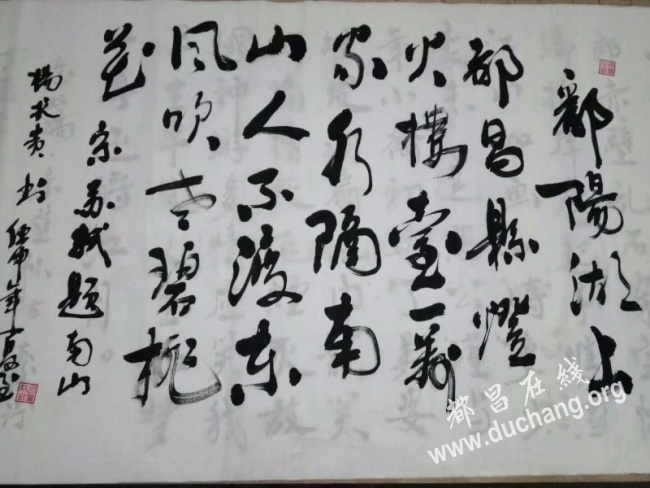 鄱陽湖上
都昌縣燈
火樓臺一萬
家水隔南
山人不渡東
風吹老碧桃
花
宋苏轼題南山
都昌在线
www.duchang.org